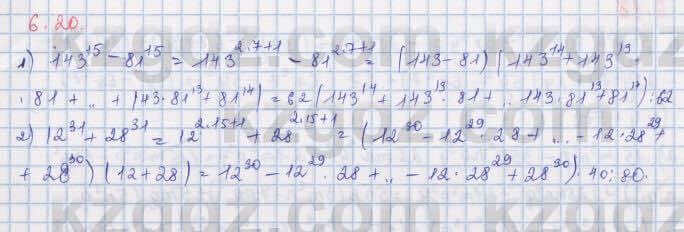 6.20.
1) 143^15 - 81^15 = 143^2·7+1 - 81^2·7+1 = (143-81)(143^14 + 143^13 ·
· 81 + .. + 143·81^13 + 81^14) = 62 (143^14 + 143^13 · 81 + .. 143·81^13 + 81^14) : 62
2) 12^31 + 28^31 = 12^2·15+1 + 28^2·15+1 = (12^30 - 12^29 · 28 + ... - 12·28^29 +
+ 28^30) (12+28) = 12^30 - 12^29 · 28 + .. - 12·28^29 + 28^30) · 40 : 80.